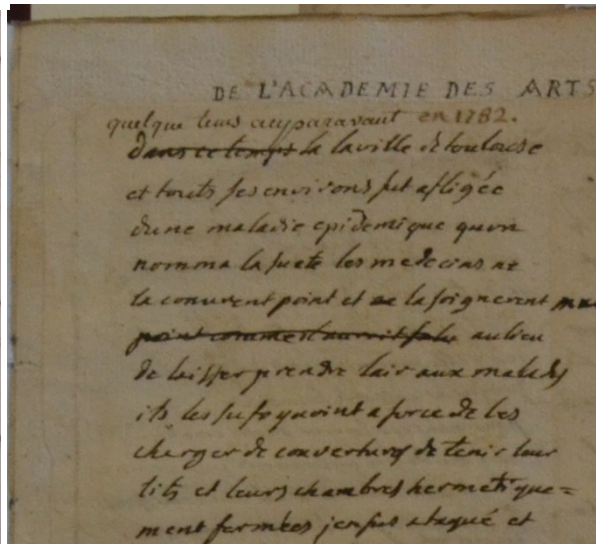 DE L'ACADEMIE DES ARTS
quelque tems auparavant en 1782.
dans ce temps la la ville de toulouse
et touts ses environs fut afligée
dune maladie epidemique quon
nomma la suete les medecins ne
la conurent point et ne la soignerent
point comme il auroit falu au lieu
de laisser prendre lair aux malades
ils les sufoquoint a force de les
charger de couvertures de tenir leur
lits et leurs chambres hermetique=
ment fermées jen fus ataqué et